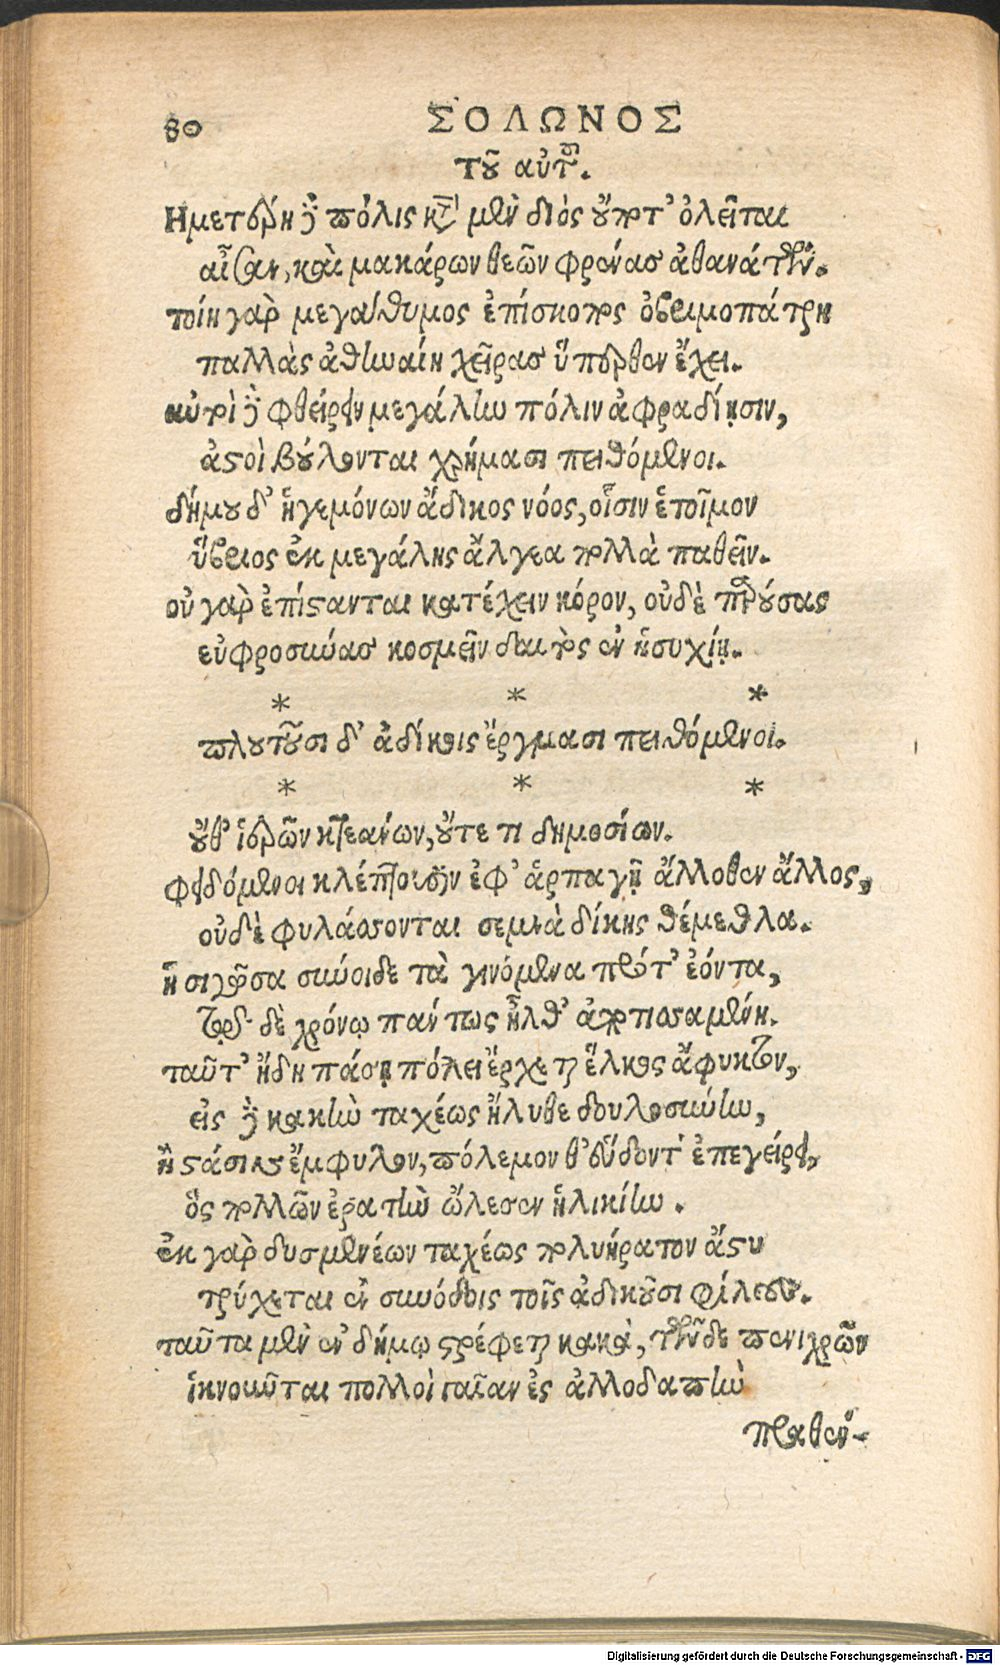 80 ΣΟΛΩΝΟΣ
τοῦ αὐτοῦ.
Ημετέρη δὲ πόλις κατὰ μὲν διὸς οὔποτ' ὀλεῖται
αἶσαν, καὶ μακάρων θεῶν φρένας ἀθανάτων.
τοίη γὰρ μεγάθυμος ἐπίσκοπος ὀβριμοπάτρη
παλλὰς ἀθηναίη χεῖρας ὕπερθεν ἔχει.
αὐτοὶ δὲ φθείρειν μεγάλην πόλιν ἀφραδίῃσιν,
ἀστοὶ βούλονται χρήμασι πειθόμενοι.
δήμου δ' ἡγεμόνων ἄδικος νόος, οἷσιν ἑτοῖμον
ὕβριος ἐκ μεγάλης ἄλγεα πολλὰ παθεῖν.
οὐ γὰρ ἐπίστανται κατέχειν κόρον, οὐδὲ παρούσας
εὐφροσύνας κοσμεῖν δαιτὸς ἐν ἡσυχίῃ.
* * *
πλουτοῦσι δ' ἀδίκοις ἔργμασι πειθόμενοι.
* * *
οὔθ' ἱερῶν κτεάνων, οὔτε τι δημοσίων.
φειδόμενοι κλέπτουσιν ἐφ' ἁρπαγῇ ἄλλοθεν ἄλλος,
οὐδὲ φυλάσσονται σεμνὰ δίκης θέμεθλα.
ἣ σιγῶσα σύνοιδε τὰ γινόμενα πρότ' ἐόντα,
τῷ δὲ χρόνῳ πάντως ἦλθ' ἀποτισαμένη.
ταῦτ' ἤδη πάσῃ πόλει ἔρχεται ἕλκος ἄφυκτον,
εἰς δὲ κακὴν ταχέως ἤλυθε δουλοσύνην,
ἣ στάσιν ἔμφυλον, πόλεμον θ' εὕδοντ' ἐπεγείρει,
ὃς πολλῶν ἐρατὴν ὤλεσεν ἡλικίην.
ἐκ γὰρ δυσμενέων ταχέως πολυήρατον ἄστυ
τρύχεται ἐν συνόδοις τοῖς ἀδικοῦσι φίλοις.
ταῦτα μὲν ἐν δήμῳ στρέφεται κακὰ, τῶν δὲ πενιχρῶν
ἱκνοῦνται πολλοὶ γαῖαν ἐς ἀλλοδαπὴν
πραθέν-
Digitalisierung gefördert durch die Deutsche Forschungsgemeinschaft - DFG